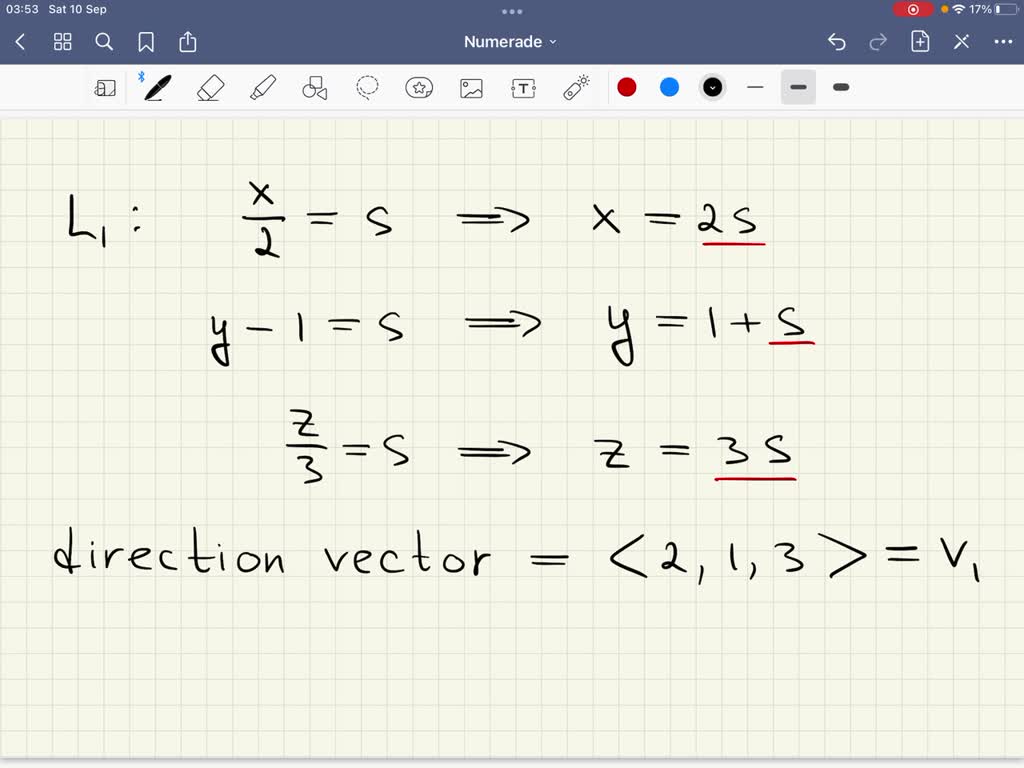 03:53 Sat 10 Sep 17%
Numerade
T
L₁ : x/2 = s ⟹ x = 2s
y - 1 = s ⟹ y = 1 + s
z/3 = s ⟹ z = 3s
direction vector = <2, 1, 3> = v₁